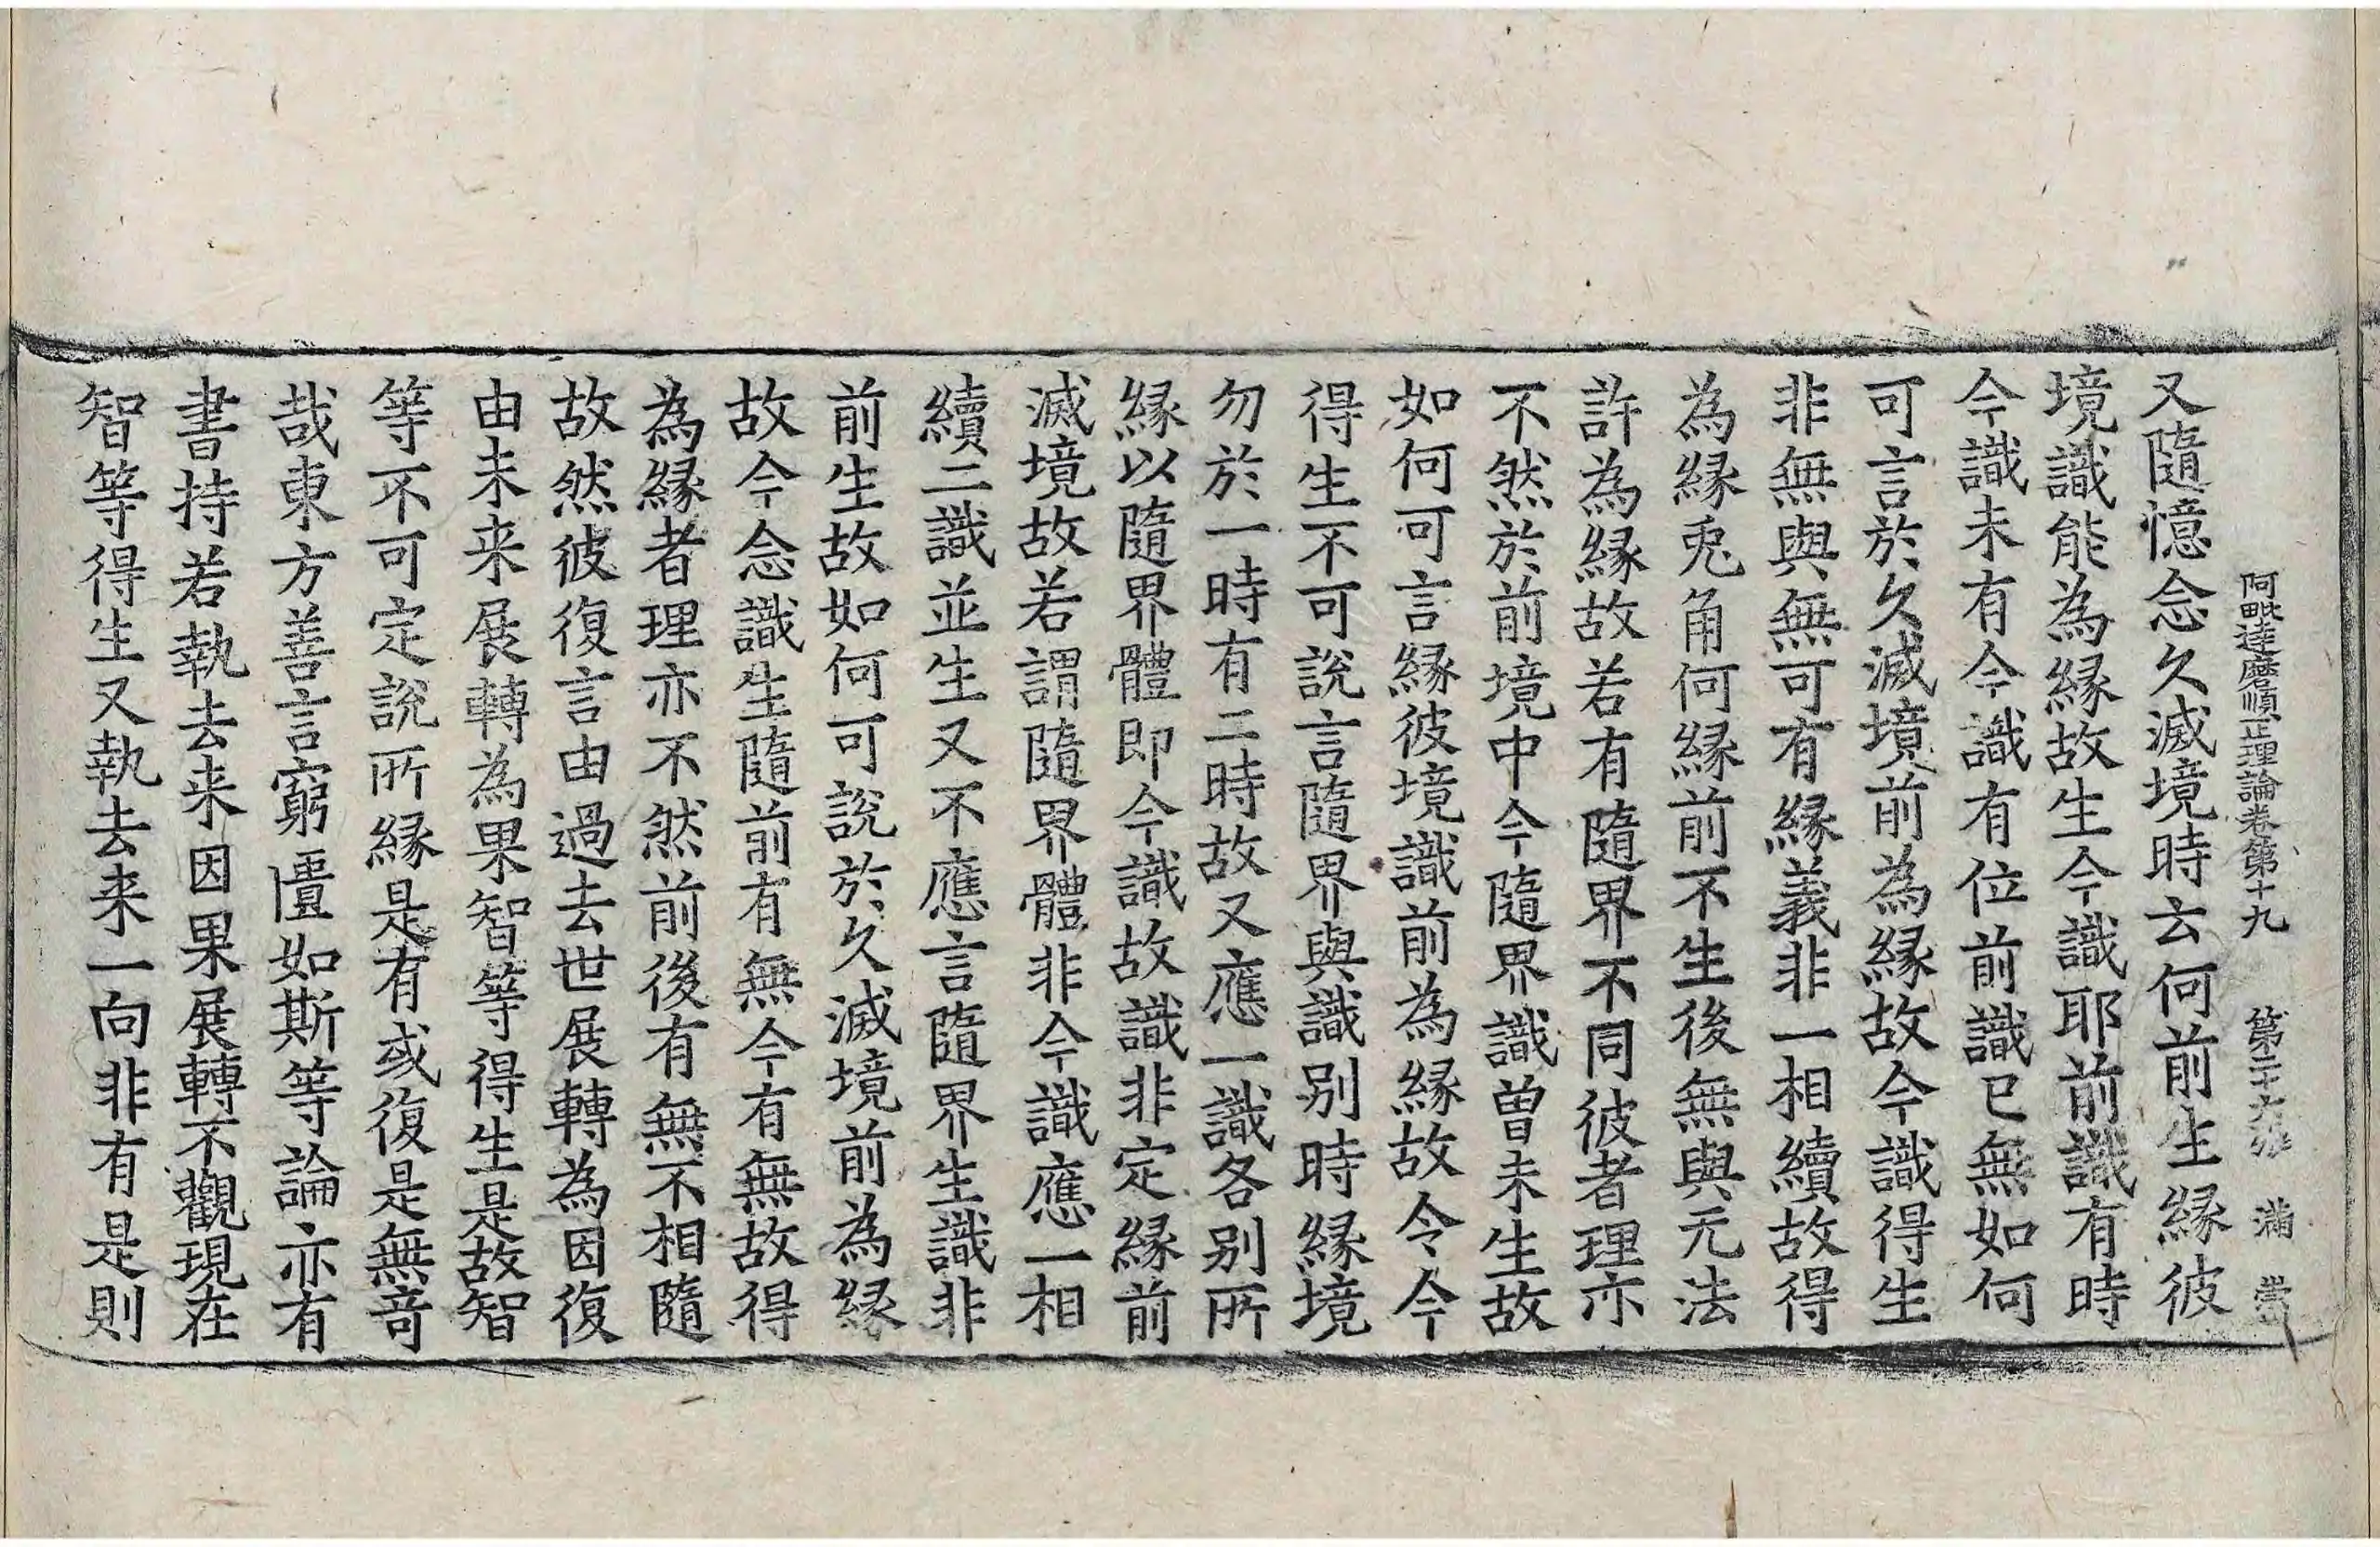 阿毗達磨順正理論卷第十九 第二十六張 滿
又隨憶念久滅境時云何前生緣彼
境識能為緣故生今識耶前識有時
今識未有今識有位前識已無如何
可言於久滅境前為緣故今識得生
非無與無可有緣義非一相續故得
為緣兎角何緣前不生後無與无法
許為緣故若有隨界不同彼者理亦
不然於前境中今隨界識曽未生故
如何可言緣彼境識前為緣故令今
得生不可說言隨界與識別時緣境
勿於一時有二時故又應一識各別所
緣以隨界體即今識故識非定緣前
滅境故若謂隨界體非今識應一相
續二識並生又不應言隨界生識非
前生故如何可說於久滅境前為緣
故今念識生隨前有無今有無故得
為緣者理亦不然前後有無不相隨
故然彼復言由過去世展轉為因復
由未来展轉為果智等得生是故智
等不可定說所緣是有或復是無竒
哉東方善言窮匱如斯等論亦有
書持若執去来因果展轉不觀現在
智等得生又執去来一向非有是則